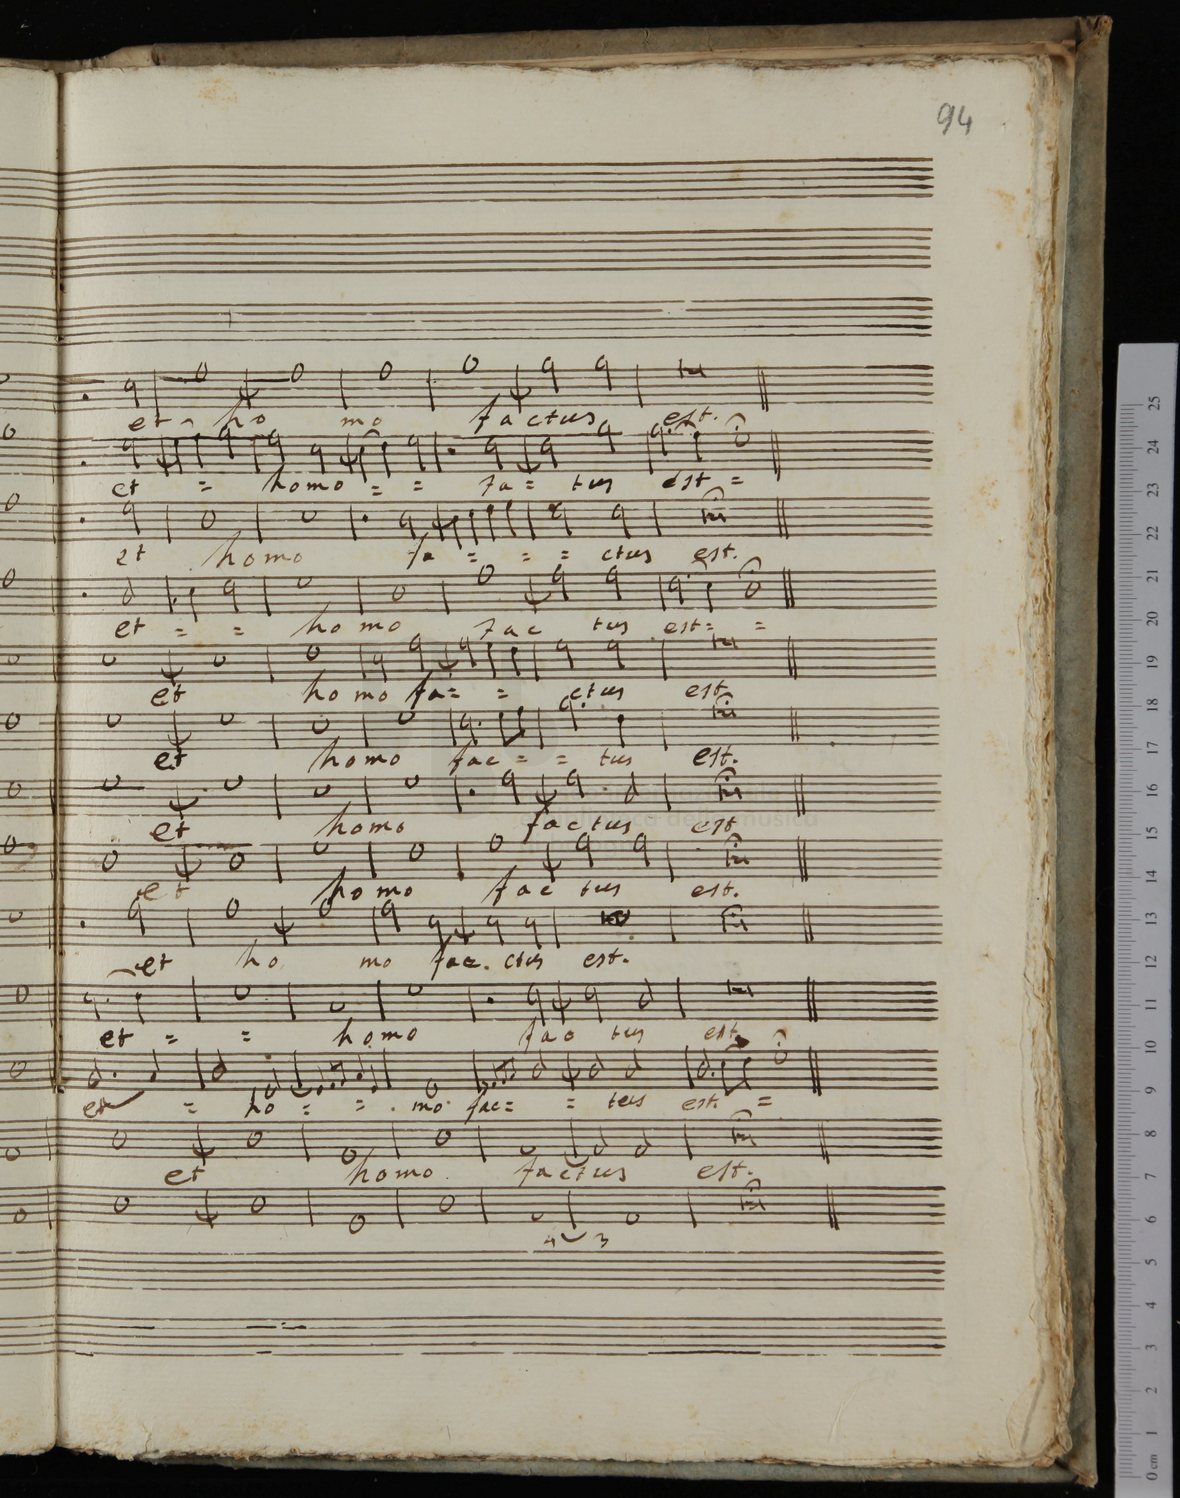 94
et ho mo factus est.
et = homo = = fa = tus est =
et homo fa = = = ctus est.
et = = homo fac tus est = =
et homo fa = = ctus est
et homo fac = = tus est.
et homo factus est
et homo fac tus est.
et ho mo fac. ctus est.
et = = homo fac tus est
et = ho = = . mo fac = = tus est. =
et homo factus est.
4 3
25
24
23
22
21
20
19
18
17
16
15
14
13
12
11
10
9
8
7
6
5
4
3
2
1
0 cm